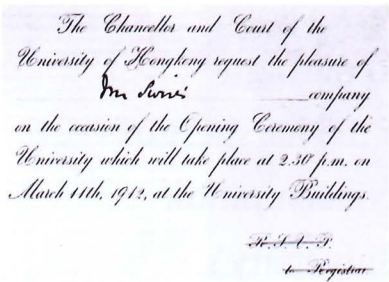 The Chancellor and Court of the
University of Hongkong request the pleasure of
company
on the occasion of the Opening Ceremony of the
University which will take place at 2.30 p.m. on
March 11th, 1912, at the University Buildings.
R.S.V.P.
to Registrar